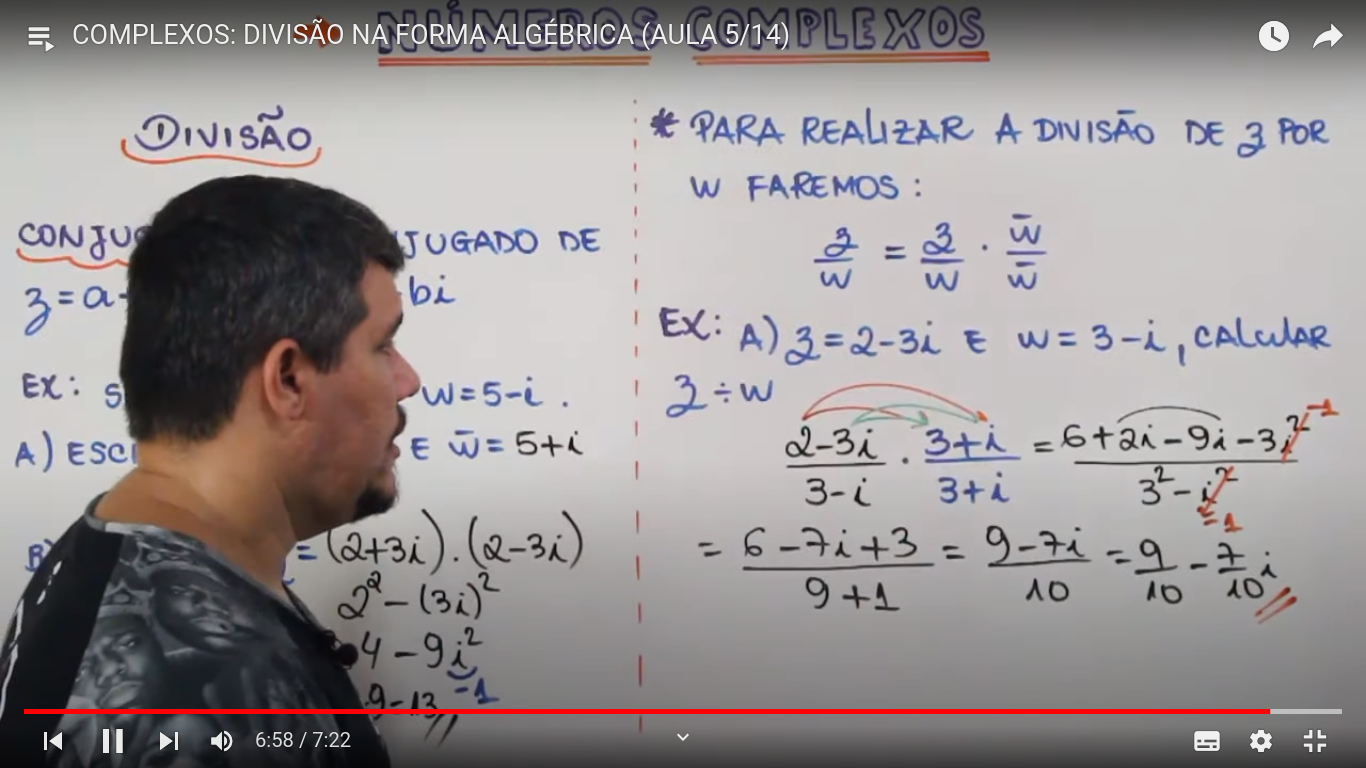 COMPLEXOS: DIVISÃO NA FORMA ALGÉBRICA (AULA 5/14)
NÚMEROS COMPLEXOS
DIVISÃO
CONJU JUGADO DE
z = a bi
EX: S w = 5 - i .
A) ESC E w̄ = 5 + i
B) = (2+3i) . (2-3i)
2² - (3i)²
4 - 9i²
-1
9 = 13
* PARA REALIZAR A DIVISÃO DE z POR
W FAREMOS :
z/w = z/w . w̄/w̄
EX: A) z = 2 - 3i E w = 3 - i , CALCULAR
z ÷ w
(2-3i)/(3-i) . (3+i)/(3+i) = (6+2i-9i-3i²)/(3²-i²) -1 = -1
= (6-7i+3)/(9+1) = (9-7i)/10 = 9/10 - 7/10 i
6:58 / 7:22